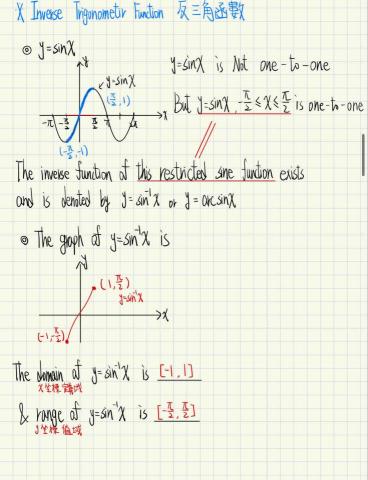 X Inverse Trigonometric Function 反三角函數
◎ y=sinx
y
y=sinx
(π/2, 1)
-π -π/2 π/2 π 2π x
(-π/2, -1)
y=sinx is Not one-to-one
But y=sinx, -π/2 ≤ x ≤ π/2 is one-to-one
The inverse function of this restricted sine function exists
and is denoted by y=sin⁻¹x or y=arcsinx
◎ The graph of y=sin⁻¹x is
y
(1, π/2)
y=sin⁻¹x
x
(-1, -π/2)
The domain of y=sin⁻¹x is [-1, 1]
X坐標 定義域
& range of y=sin⁻¹x is [-π/2, π/2]
y坐標 值域